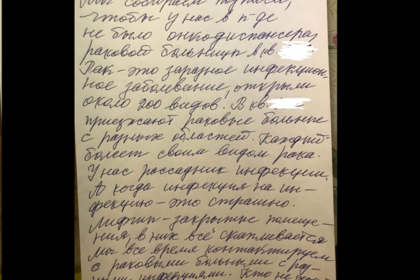 Мы собираем подписи,
чтобы у нас в п-де
не было онкодиспансера,
раковой больницы в кв
Рак - это заразное инфекцион-
ное заболевание, открыли
около 200 видов. В кв
приезжают раковые больные
с разных областей. Каждый
болеет своим видом рака.
У нас рассадник инфекции.
А когда инфекция на ин-
фекцию - это страшно.
Лифты - закрытые помеще-
ния, в них всё скапливается
Мы все время контактируем
с раковыми больными с раз-
ными инфекциями. Кто не